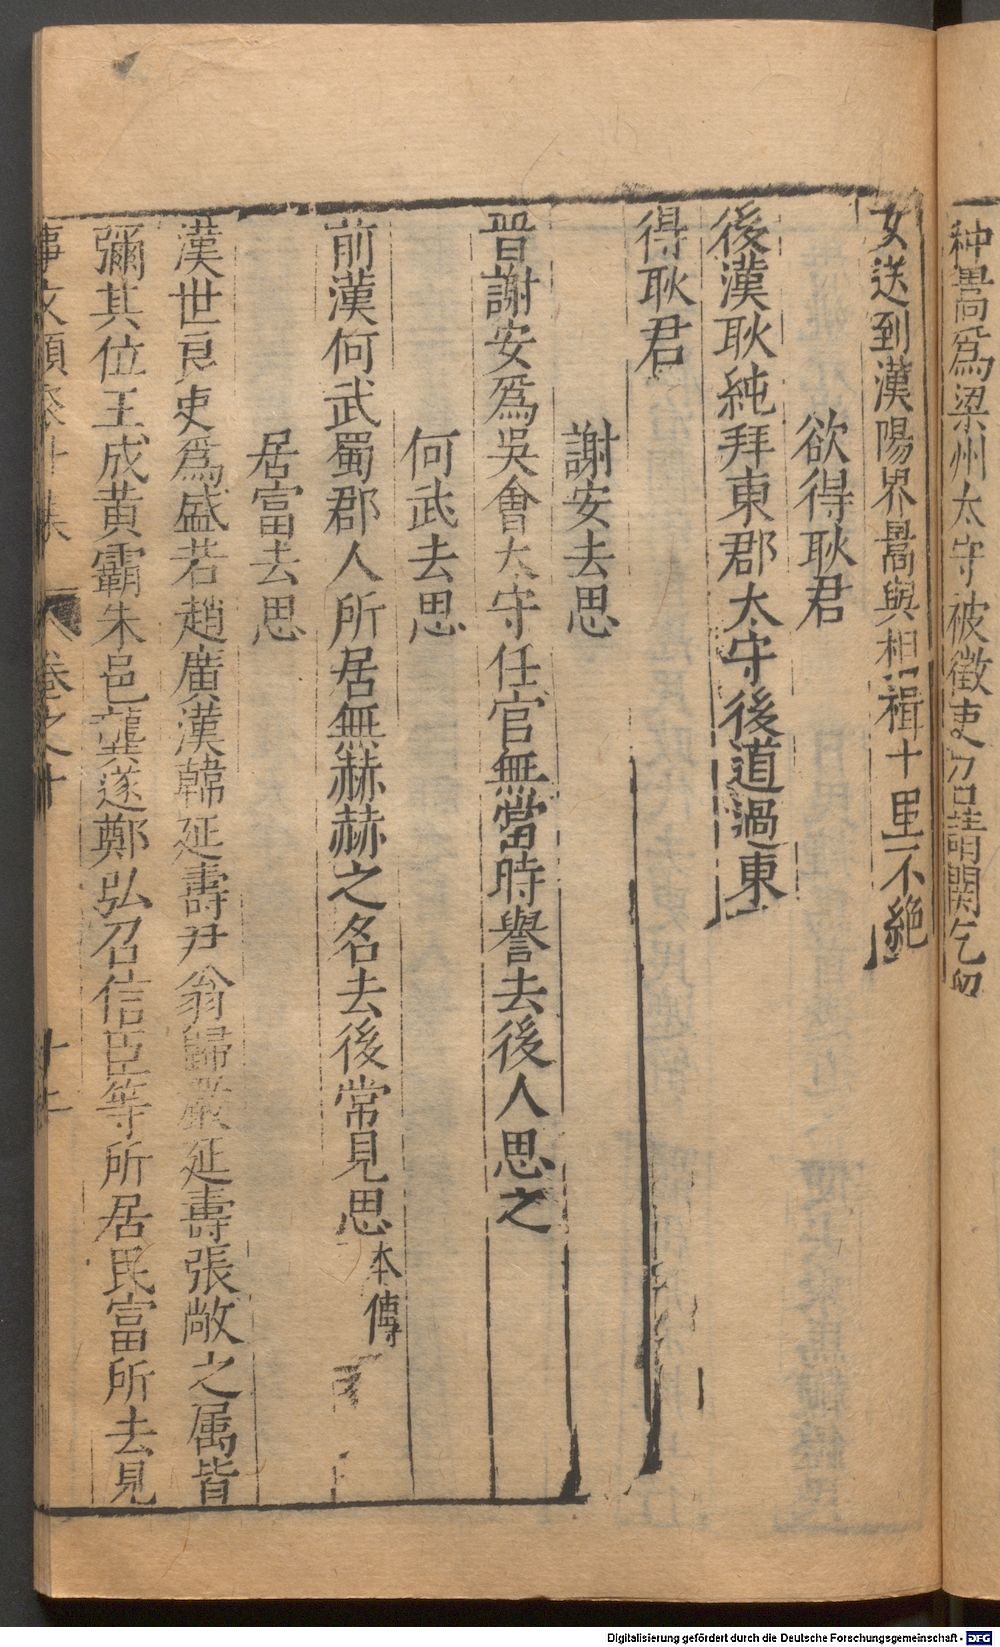 种暠爲梁州太守被徵吏乃詣闕乞留
女送到漢陽界暠與相揖十里不絶
欲得耿君
後漢耿純拜東郡太守後道過東
得耿君
謝安去思
晉謝安爲吳會太守任官無當時譽去後人思之
何武去思
前漢何武蜀郡人所居無赫赫之名去後常見思本傳
居富去思
漢世良吏爲盛若趙廣漢韓延壽尹翁歸嚴延壽張敞之属皆
彌其位王成黄霸朱邑龔遂鄭弘召信臣等所居民富所去見
事文類聚 卷之十
Digitalisierung gefördert durch die Deutsche Forschungsgemeinschaft - DFG